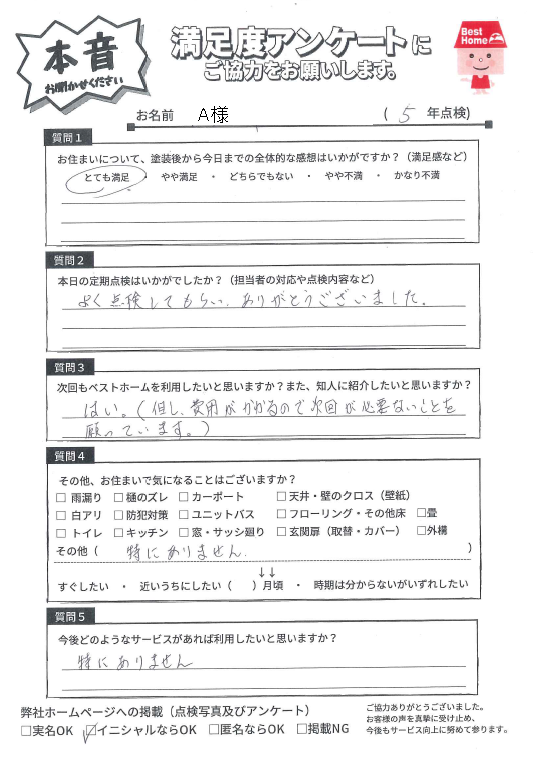 本音
お聞かせください
満足度アンケートに
ご協力をお願いします。
Best Home
お名前 A様 ( 5 年点検)
質問1
お住まいについて、塗装後から今日までの全体的な感想はいかがですか？（満足感など）
とても満足 ・ やや満足 ・ どちらでもない ・ やや不満 ・ かなり不満
質問2
本日の定期点検はいかがでしたか？（担当者の対応や点検内容など）
よく点検してもらい、ありがとうございました。
質問3
次回もベストホームを利用したいと思いますか？また、知人に紹介したいと思いますか？
はい。(但し、費用がかかるので次回が必要ないことを
願っています。)
質問4
その他、お住まいで気になることはございますか？
□ 雨漏り □ 樋のズレ □ カーポート □ 天井・壁のクロス（壁紙）
□ 白アリ □ 防犯対策 □ ユニットバス □ フローリング・その他床 □畳
□ トイレ □ キッチン □ 窓・サッシ廻り □ 玄関扉（取替・カバー） □外構
その他（ 特にありません。 ）
↓↓
すぐしたい ・ 近いうちにしたい（ ）月頃 ・ 時期は分からないがいずれしたい
質問5
今後どのようなサービスがあれば利用したいと思いますか？
特にありません
弊社ホームページへの掲載（点検写真及びアンケート）
□実名OK ☑イニシャルならOK □匿名ならOK □掲載NG
ご協力ありがとうございました。
お客様の声を真摯に受け止め、
今後もサービス向上に努めて参ります。